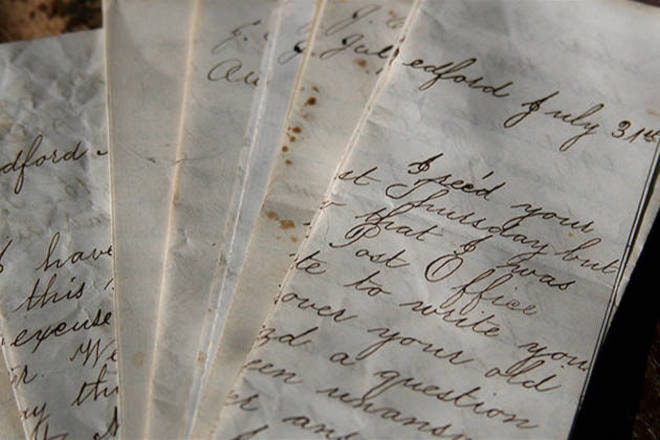 dford
I have
this
excuse
We
my
J.
Au
J.
J. Jul
edford July 31st
I rec'd your
st Thursday but
that I was
Post Office
te to write you
over your old
a question
een unansw